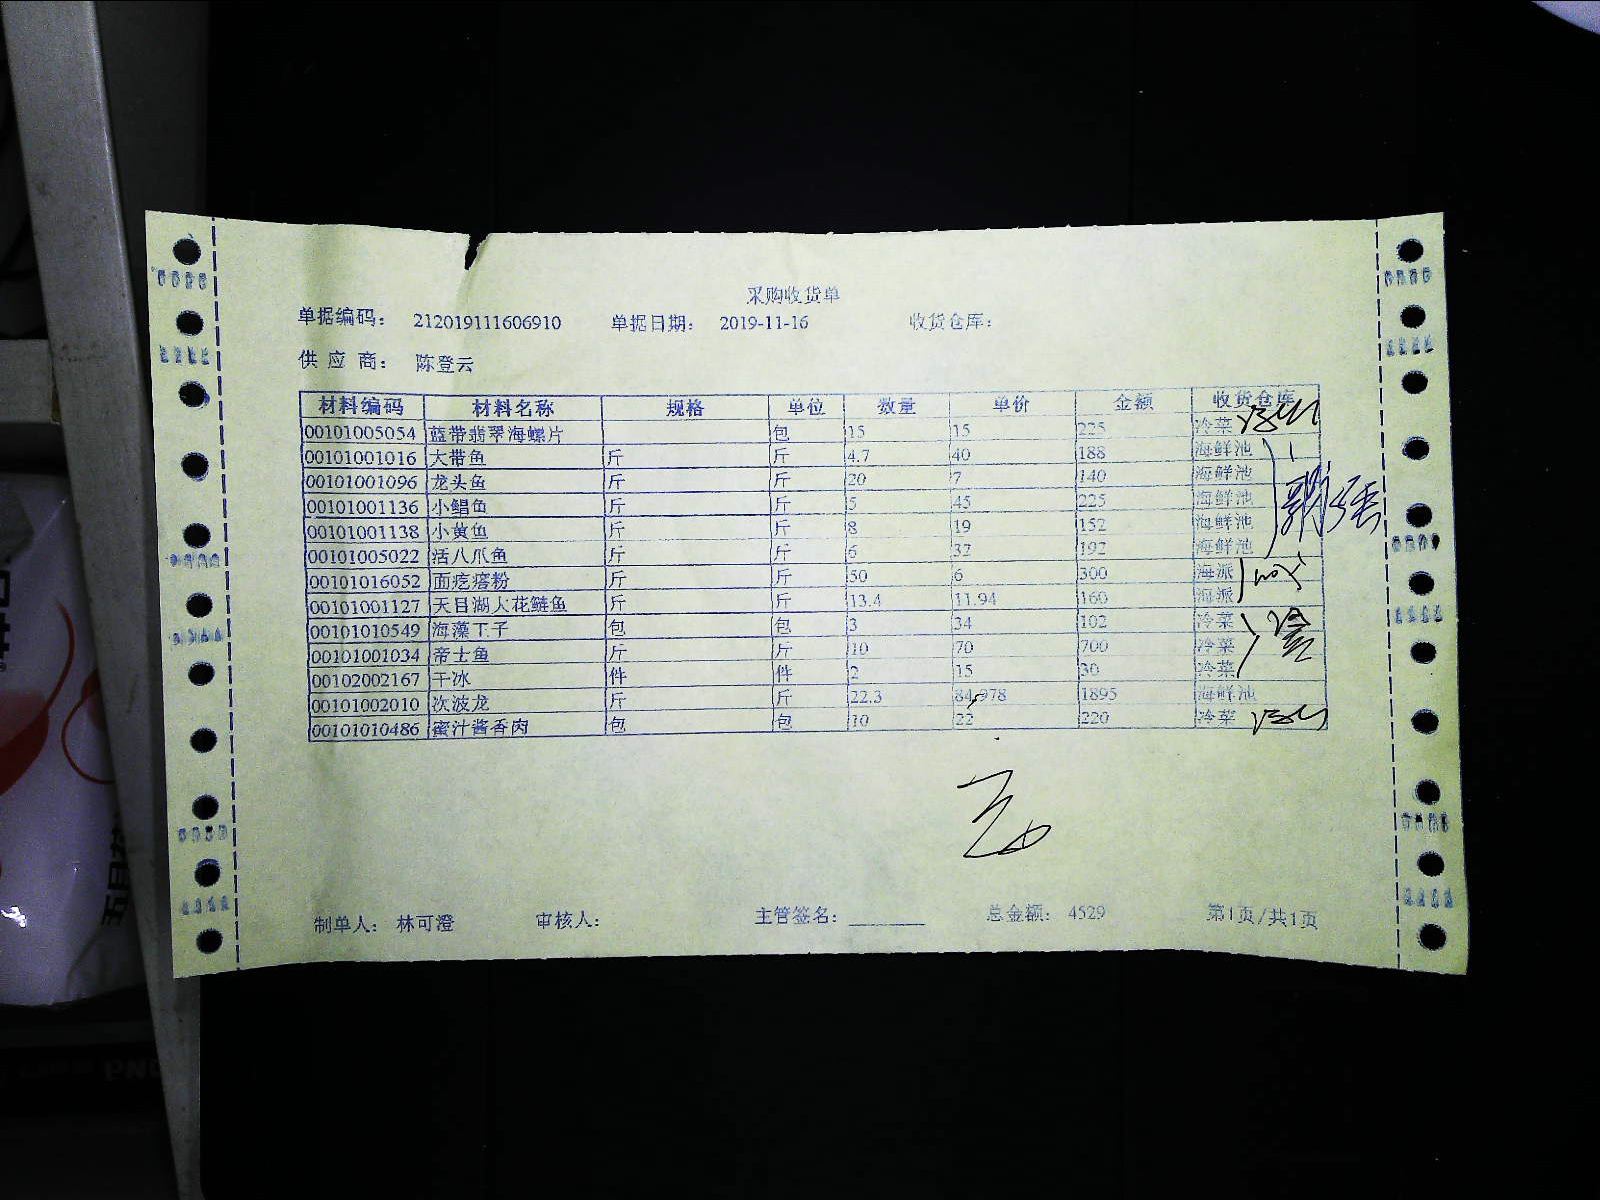 采购收货单
单据编码： 212019111606910 单据日期： 2019-11-16 收货仓库：
供 应 商： 陈登云
材料编码 材料名称 规格 单位 数量 单价 金额 收货仓库
00101005054 蓝带翡翠海螺片 包 15 15 225 冷菜
00101001016 大带鱼 斤 斤 4.7 40 188 海鲜池
00101001096 龙头鱼 斤 斤 20 7 140 海鲜池
00101001136 小鲳鱼 斤 斤 5 45 225 海鲜池
00101001138 小黄鱼 斤 斤 8 19 152 海鲜池
00101005022 活八爪鱼 斤 斤 6 32 192 海鲜池
00101016052 面疙瘩粉 斤 斤 50 6 300 海派
00101001127 天目湖大花鲢鱼 斤 斤 13.4 11.94 160 海派
00101010549 海藻丁子 包 包 3 34 102 冷菜
00101001034 帝士鱼 斤 斤 10 70 700 冷菜
00102002167 干冰 件 件 2 15 30 冷菜
00101002010 次波龙 斤 斤 22.3 84.978 1895 海鲜池
00101010486 蜜汁酱香肉 包 包 10 22 220 冷菜
制单人： 林可澄 审核人： 主管签名： 总金额： 4529 第1页/共1页